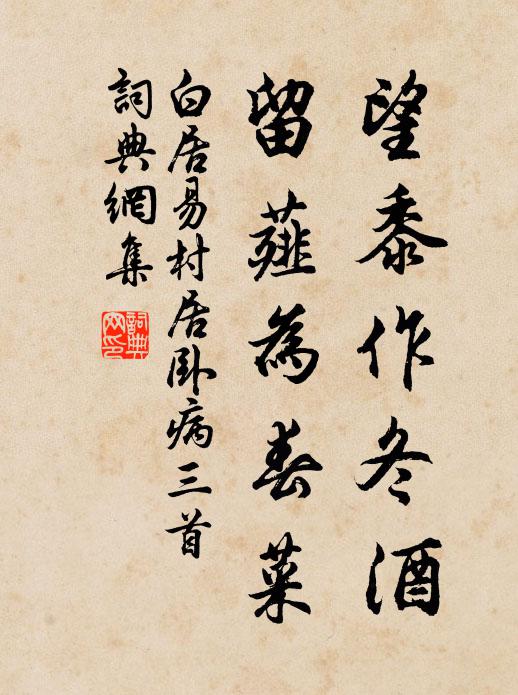 望黍作冬酒
留薤為春菜
白居易村居卧病三首
詞典網集
詞典網印